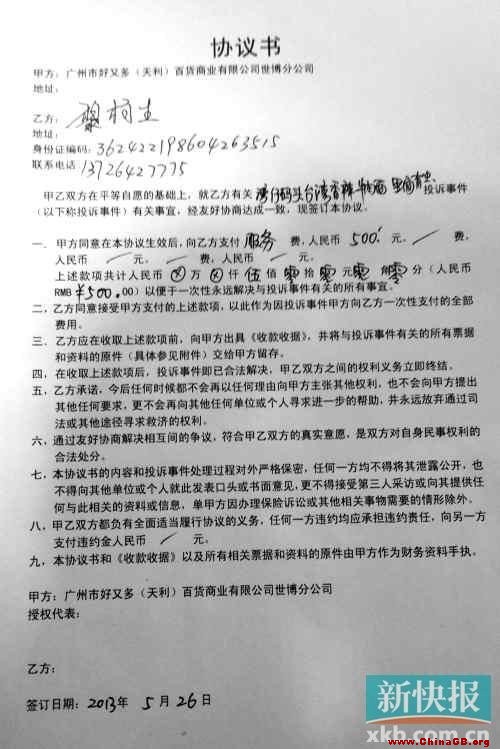 协议书
甲方：广州市好又多（天利）百货商业有限公司世博分公司
地址：
乙方：
地址：
身份证编码：362422198604263515
联系电话 13726427775
甲乙双方在平等自愿的基础上，就乙方有关 投诉事件
（以下称投诉事件）有关事宜，经友好协商达成一致，现签订本协议。
一、甲方同意在本协议生效后，向乙方支付 服务 费，人民币 500 元。／ 费，
人民币 ／ 元。／ 费，人民币 ／ 元。
上述款项共计人民币 ⊗ 万 ⊗ 仟 伍 佰 零 拾 零 元 零 角 零 分（人民币
RMB ¥500.00）以便于一次性永远解决与投诉事件有关的所有事宜。
二，乙方同意接受甲方支付的上述款项，以此作为因投诉事件甲方向乙方一次性支付的全部
费用。
三、乙方应在收取上述款项前，向甲方出具《收款收据》，并将与投诉事件有关的所有票据
和资料的原件（具体参见附件）交给甲方留存。
四，在收取上述款项后，投诉事件即已合法解决，甲乙双方之间的权利义务立即终结。
五，乙方承诺，今后任何时候都不会再以任何理由向甲方主张其他权利，也不会向甲方提出
其他任何要求，更不会再向其他任何单位或个人寻求进一步的帮助，并永远放弃通过司
法或其他途径寻求救济的权利。
六，通过友好协商解决相互间的争议，符合甲乙双方的真实意愿，是双方对自身民事权利的
合法处分。
七，本协议书的内容和投诉事件处理过程对外严格保密，任何一方均不得将其泄露公开，也
不得向其他单位或个人就此发表口头或书面意见，更不得接受第三人采访或向其提供任
何与此相关的资料或信息，单甲方因办理保险诉讼或其他相关事物需要的情形除外。
八，甲乙双方都负有全面适当履行协议的义务，任何一方违约均应承担违约责任，向另一方
支付违约金人民币 ／ 元。
九，本协议书和《收款收据》以及所有相关票据和资料的原件由甲方作为财务资料手执。
甲方：广州市好又多（天利）百货商业有限公司世博分公司
授权代表：
乙方：
签订日期：2013年 5 月 26 日
新快报
xkb.com.cn
www.ChinaGB.org